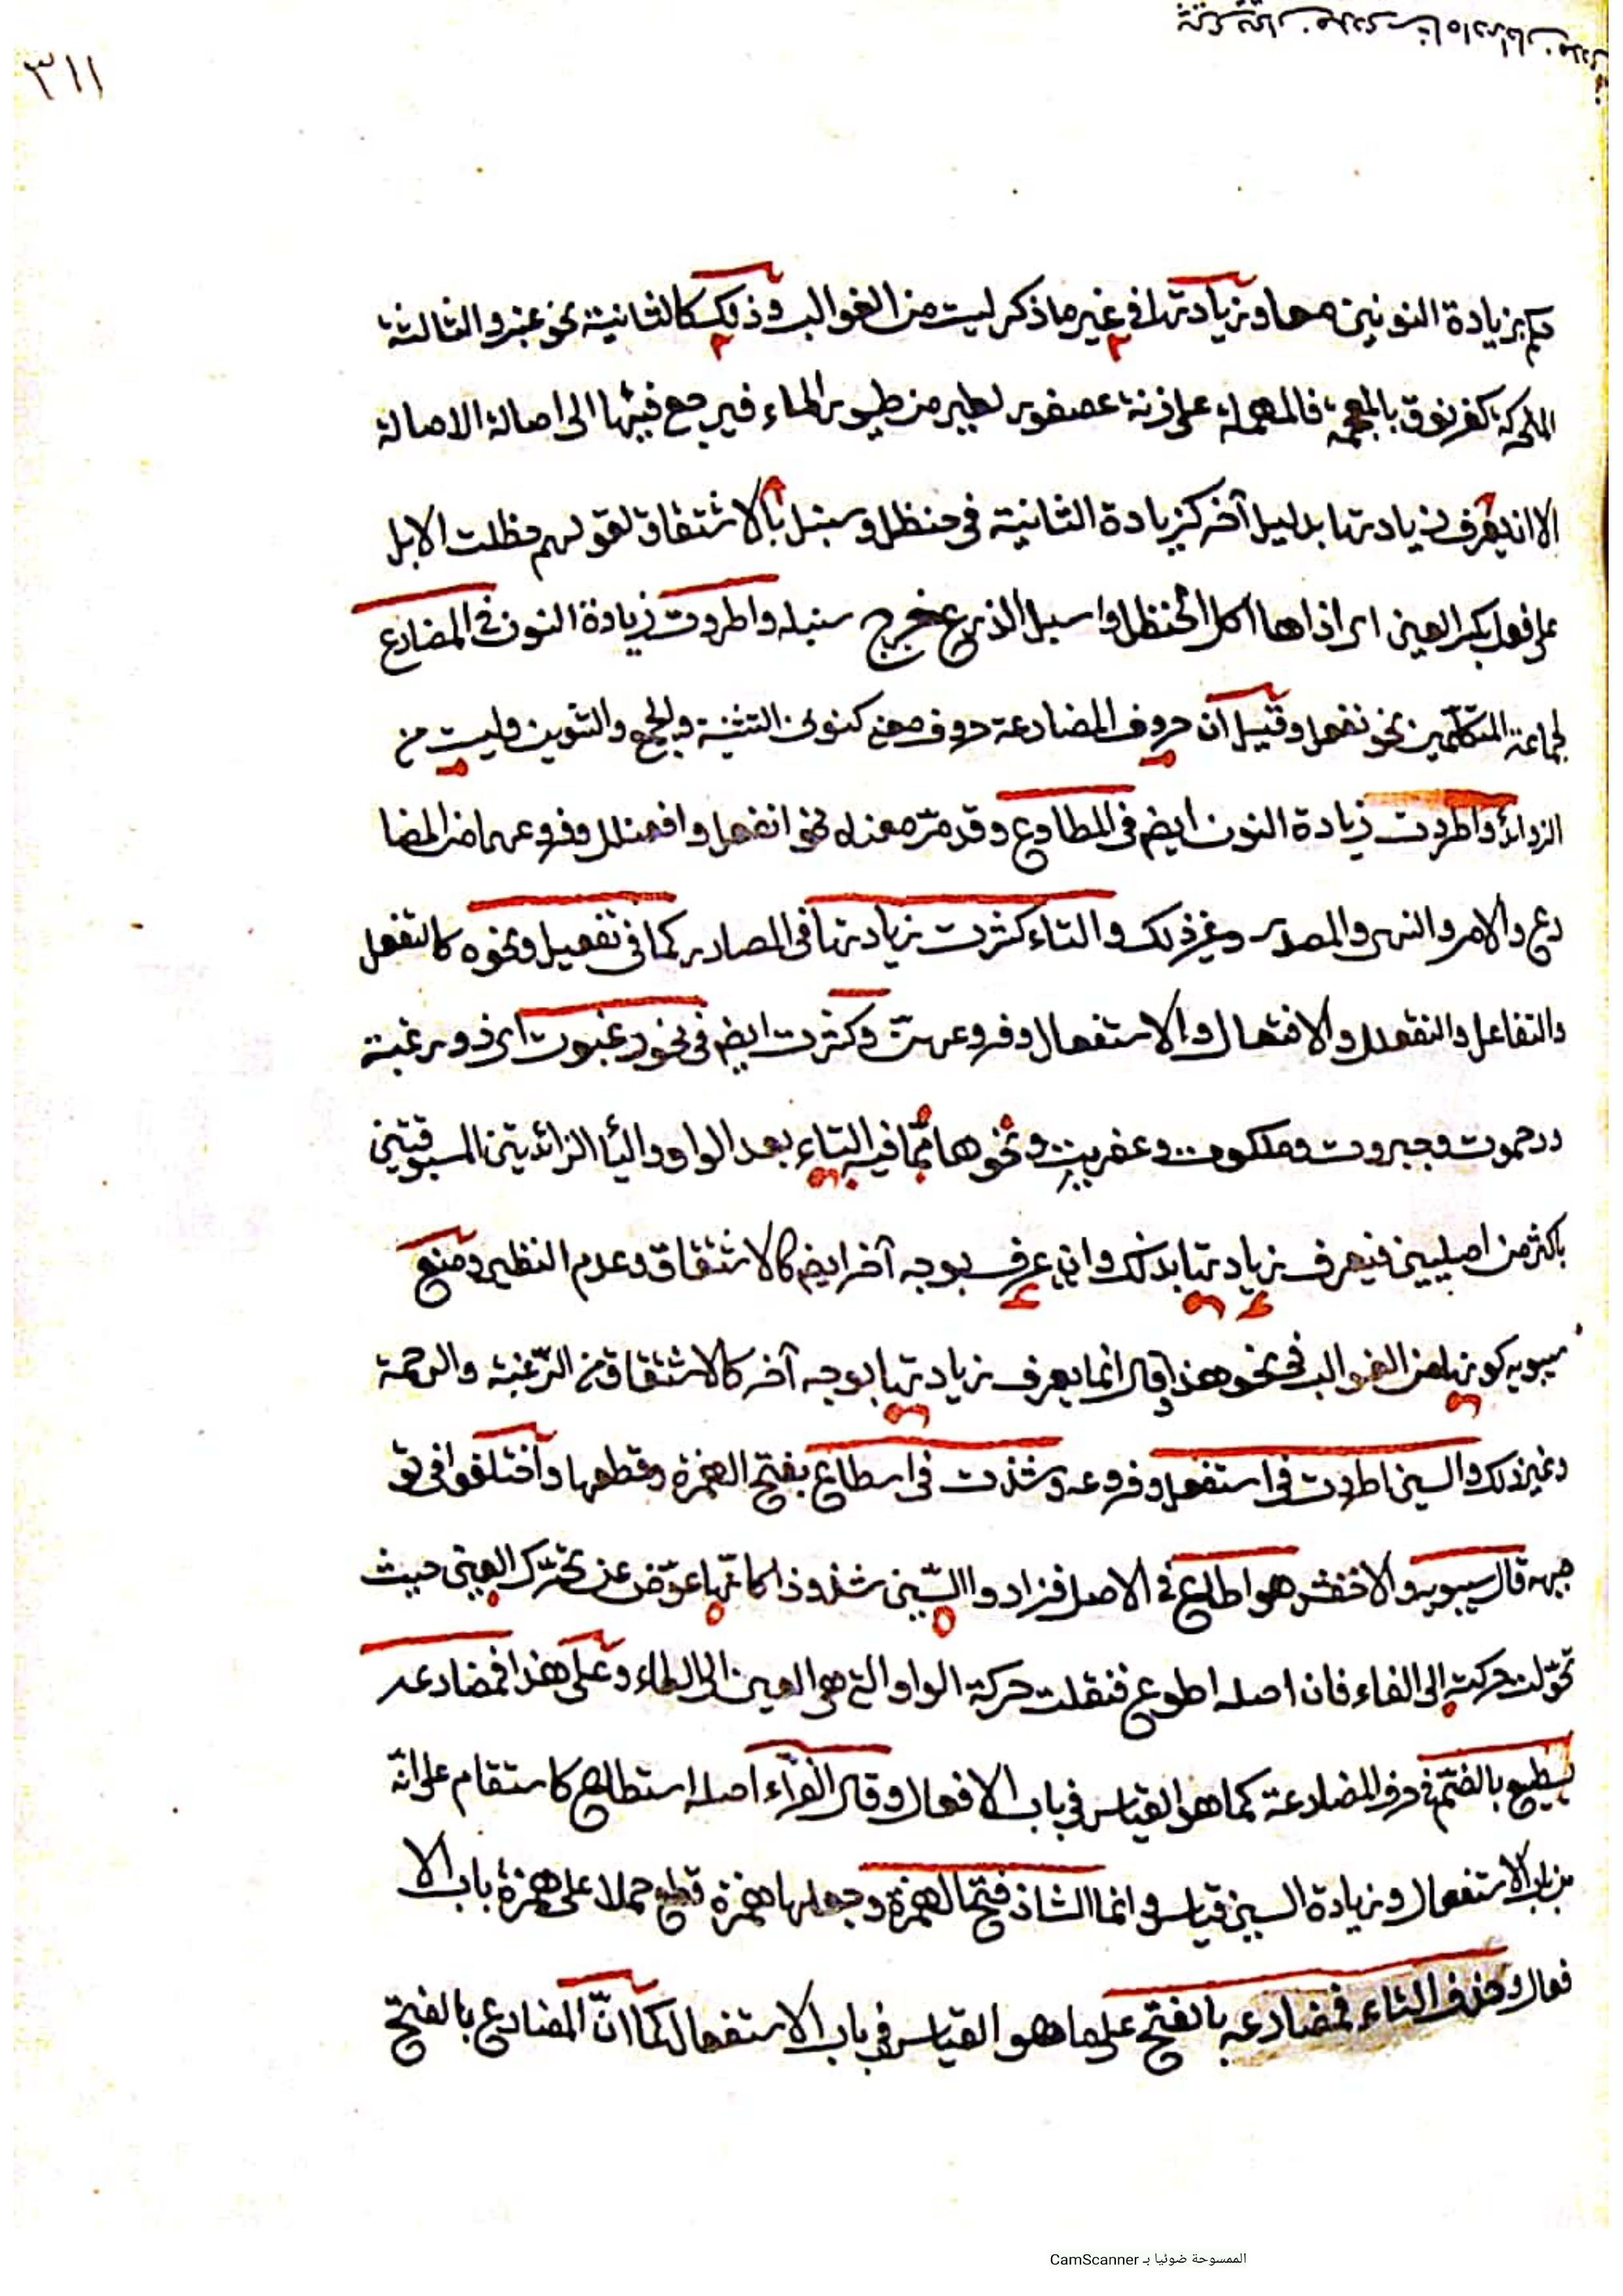 ٣١١
حكم بزيادة النونين معا وزيادتها في غير ما ذكر ليت من الغوالب وذلك كالثانية نحو عنبر والثالثة
المتحركة كغرنوق بالمعجمة فالمهملة على زنة عصفور لطير من طيور الماء فيرجع فيها الى اصالة الاصالة
الا ان يعرف زيادتها بدليل آخر كزيادة الثانية في حنظل وسنبل بالاشتقاق لقولهم حظلت الابل
على فعل بكسر العين اى اذاها اكل الحنظل واسبل الذرع خرج سنبله واطردت زيادة النون في المضارع
لجماعة المتكلمين نحو نفعل وقيل ان حروف المضارعة حروف معنى كنونى التثنية والجمع والتنوين وليت من
الزوائد واطردت زيادة النون ايضم في المطاوع وقد مر معناه نحو انفعل وافعنلل وفروعهما من المضا
رع والامر والنهى والمصدر وغير ذلك والتاء كثرت زيادتها في المصادر كما في تفعيل ونحوه كالتفعل
والتفاعل والتفعلل والافتعال والاستفعال وفروعهن وكثرت ايضم في نحو رغبوت اى ذو رغبة
ورحموت وجبروت وملكوت وعفريت ونحوها مما فيه التاء بعد الواو والياء الزائدتين المسبوقتين
باكثر من اصليين فيعرف زيادتها بذلك وان عرف بوجه آخر ايضم كالاشتقاق وعدم النظير ومنع
سيبويه كونها من الغوالب في نحو هذا وقال انما يعرف زيادتها بوجه آخر كالاشتقاق من الرغبة والرحمة
وغير ذلك والسين اطردت في استفعل وفروعه وشذت في اسطاع بفتح الهمزة وقطعها واختلفوا في تو
جيهه قال سيبويه والاخفش هو اطاع في الاصل فزادوا السين شذوذا كانها عوض عن تحرك العين حيث
تحولت حركته الى الفاء فان اصله اطوع فنقلت حركة الواو التى هى العين الى الطاء وعلى هذا فمضارعه
يسطيع بالضم في حرف المضارعة كما هو القياس في باب الافعال وقال الفراء اصله استطاع كاستقام على انه
من باب الاستفعال وزيادة السين قياس وانما الشاذ فتح الهمزة وجعلها همزة قطع حملا على همزة باب الا
فعال وحذف التاء فمضارعه بالفتح على ما هو القياس في باب الاستفعال كما ان المضارع بالفتح
الممسوحة ضوئيا بـ CamScanner